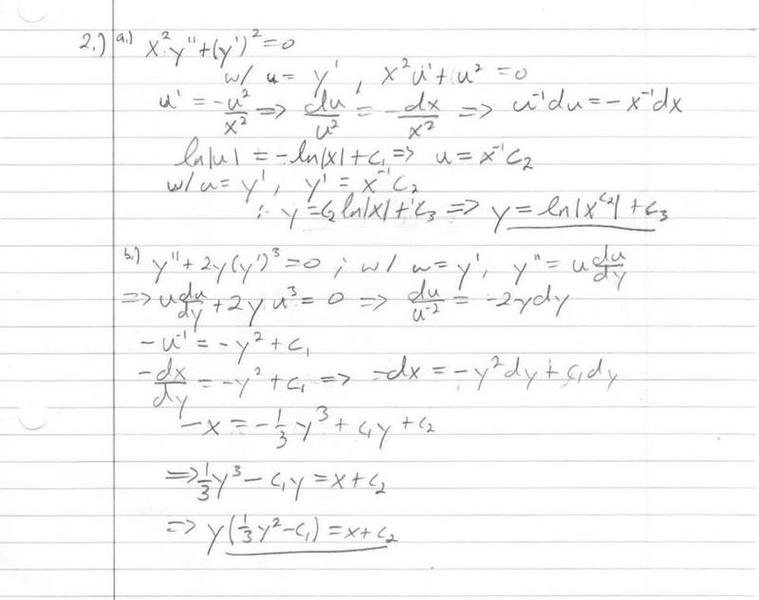 2.) a.) x²y" + (y')² = 0
w/ u = y', x²u' + u² = 0
u' = -u²/x² => du/u² = -dx/x² => u⁻¹du = -x⁻¹dx
ln|u| = -ln|x| + c₁ => u = x⁻¹c₂
w/ u = y', y' = x⁻¹c₂
∴ y = c₂ln|x| + c₃ => y = ln|x^c₂| + c₃
b.) y" + 2y(y')³ = 0 ; w/ u = y', y" = u du/dy
=> u du/dy + 2y u³ = 0 => du/u⁻² = -2ydy
-u⁻¹ = -y² + c₁
-dx/dy = -y² + c₁ => -dx = -y²dy + c₁dy
-x = -1/3 y³ + c₁y + c₂
=> 1/3 y³ - c₁y = x + c₂
=> y(1/3 y² - c₁) = x + c₂